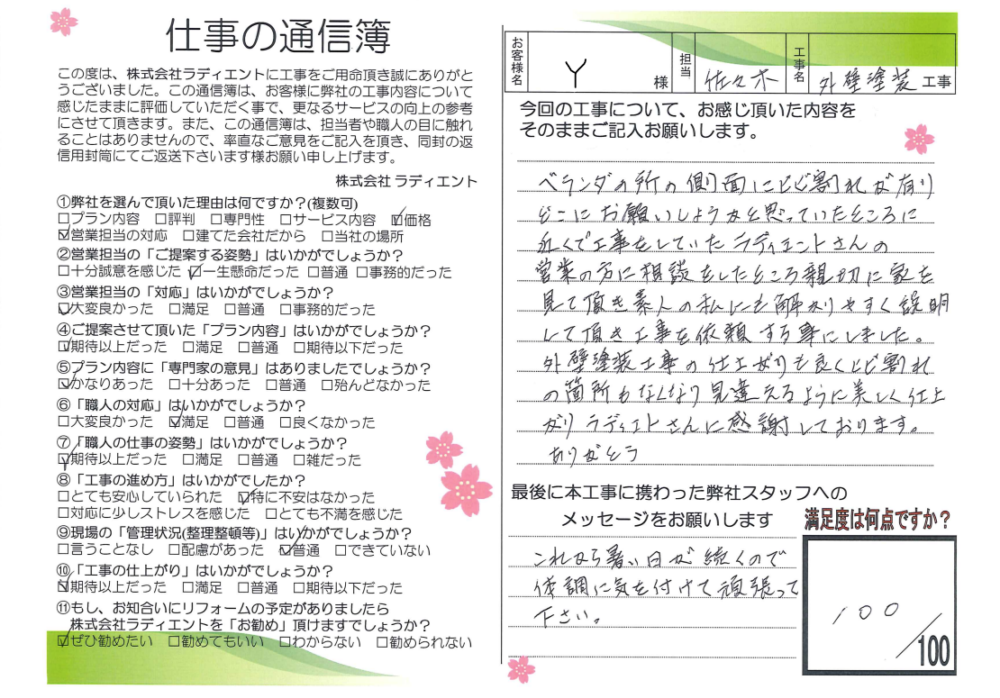 仕事の通信簿
この度は、株式会社ラディエントに工事をご用命頂き誠にありがと
うございました。この通信簿は、お客様に弊社の工事内容について
感じたままに評価していただく事で、更なるサービスの向上の参考
にさせて頂きます。また、この通信簿は、担当者や職人の目に触れ
ることはありませんので、率直なご意見をご記入を頂き、同封の返
信用封筒にてご返送下さいます様お願い申し上げます。
株式会社 ラディエント
①弊社を選んで頂いた理由は何ですか?(複数可)
□プラン内容 □評判 □専門性 □サービス内容 ☑価格
☑営業担当の対応 □建てた会社だから □当社の場所
②営業担当の「ご提案する姿勢」はいかがでしょうか?
□十分誠意を感じた ☑一生懸命だった □普通 □事務的だった
③営業担当の「対応」はいかがでしょうか?
☑大変良かった □満足 □普通 □事務的だった
④ご提案させて頂いた「プラン内容」はいかがでしょうか?
☑期待以上だった □満足 □普通 □期待以下だった
⑤プラン内容に「専門家の意見」はありましたでしょうか?
☑かなりあった □十分あった □普通 □殆んどなかった
⑥「職人の対応」はいかがでしょうか?
□大変良かった ☑満足 □普通 □良くなかった
⑦「職人の仕事の姿勢」はいかがでしょうか?
☑期待以上だった □満足 □普通 □雑だった
⑧「工事の進め方」はいかがでしたか?
□とても安心していられた ☑特に不安はなかった
□対応に少しストレスを感じた □とても不満を感じた
⑨現場の「管理状況(整理整頓等)」はいかがでしょうか?
□言うことなし □配慮があった ☑普通 □できていない
⑩「工事の仕上がり」はいかがでしょうか?
☑期待以上だった □満足 □普通 □期待以下だった
⑪もし、お知合いにリフォームの予定がありましたら
株式会社ラディエントを「お勧め」頂けますでしょうか?
☑ぜひ勧めたい □勧めてもいい □わからない □勧められない
お客様名 Y 様 担当 佐々木 工事名 外壁塗装 工事
今回の工事について、お感じ頂いた内容を
そのままご記入お願いします。
ベランダの所の側面にひび割れが有り
どこにお願いしようかと思っていたところに
近くで工事をしていたラディエントさんの
営業の方に相談をしたところ親切に家を
見て頂き素人の私にも解かりやすく説明
して頂き工事を依頼する事にしました。
外壁塗装工事の仕上がりも良くひび割れ
の箇所もなくなり見違えるように美しく仕上
がりラディエトさんに感謝しております。
ありがとう
最後に本工事に携わった弊社スタッフへの
メッセージをお願いします
これから暑い日が続くので
体調に気を付けて頑張って
下さい。
満足度は何点ですか?
100
/100